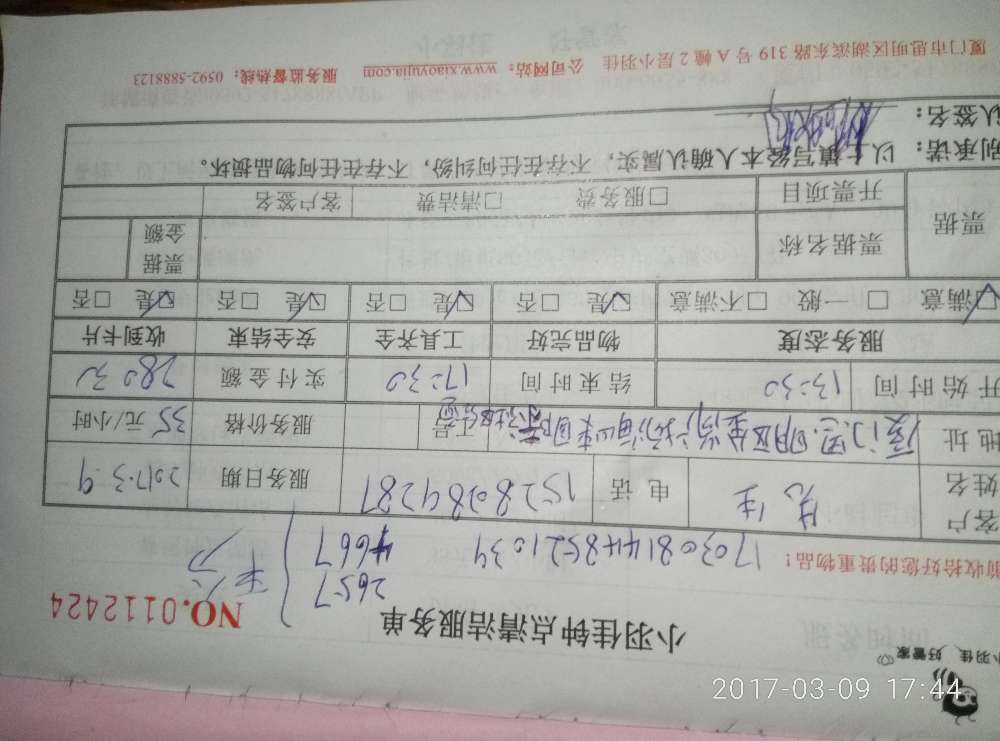 小羽佳 好管家
小羽佳钟点清洁服务单
NO.0112424
2657
4667
平分
前收拾好您的贵重物品!
17030814485521034
客户姓名 先生 电话 15280284287 服务日期 2017.3.9
地址 工号 服务价格 35 元/小时
开始时间 13:30 结束时间 17:30 实付金额 280元
服务态度 物品完好 工具齐全 安全结束 收到卡片
☑满意 □一般 □不满意 ☑是 □否 ☑是 □否 ☑是 □否 ☑是 □否
票据 票据名称 票据金额
开票项目 □服务费 □清洁费 客户签名
别承诺: 以上填写经本人确认属实,不存在任何纠纷,不存在任何物品损坏。
认签名:
厦门市思明区湖滨东路 319 号 A 幢 2 层小羽佳 公司网站:www.xiaoyujia.com 服务监督热线:0592-5888123
2017-03-09 17:44